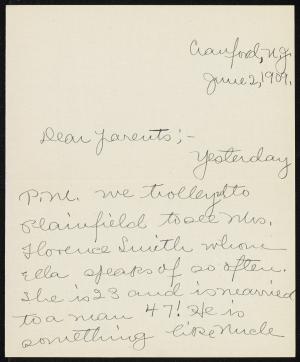 Cranford, N.J.
June 2, 1909.
Dear Parents;-
Yesterday
P.M. we trolleyed to
Plainfield to see Mrs.
Florence Smith whom
Ella speaks of so often.
She is 23 and is married
to a man 47! He is
something like Uncle